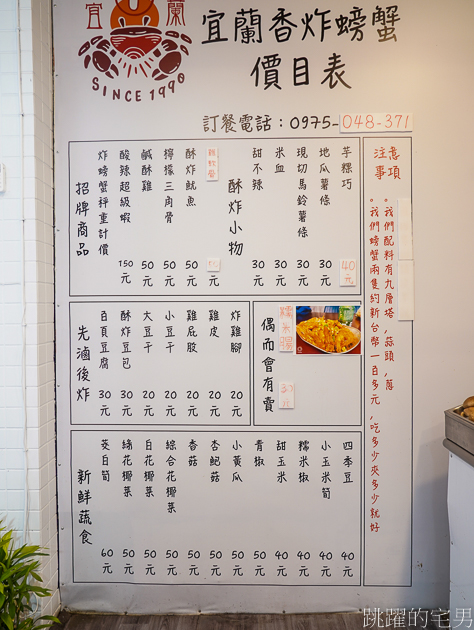 宜蘭
SINCE 1990
宜蘭香炸螃蟹
價目表
訂餐電話：0975-048-371
招牌商品
炸螃蟹秤重計價
酸辣超級蝦 150元
鹹酥雞 50元
檸檬三角骨 50元
酥炸魷魚 50元
酥炸小物
甜不辣 30元
米血 30元
現切馬鈴薯條 30元
地瓜薯條 30元
芋粿巧 40元
先滷後炸
百頁豆腐 30元
酥炸豆包 30元
大豆干 20元
小豆干 20元
雞屁股 20元
雞皮 20元
炸雞腳 20元
偶而會有賣
糯米腸 30元
新鮮蔬食
茭白筍 60元
綠花椰菜 50元
白花椰菜 50元
綜合花椰菜 50元
香菇 50元
杏鮑菇 50元
小黃瓜 50元
青椒 50元
甜玉米 40元
糯米椒 40元
小玉米筍 40元
四季豆 40元
注意事項
。我們配料有九層塔，蒜頭，蔥
。我們螃蟹兩隻約新台幣一百多元，吃多少夾多少就好
跳躍的宅男